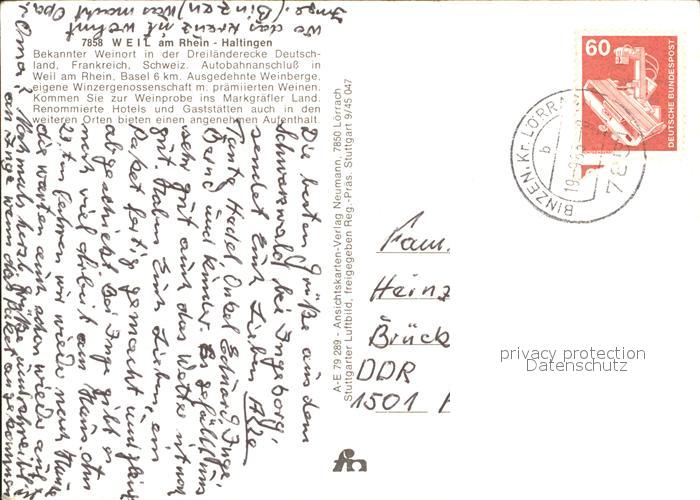 7858 WEIL am Rhein - Haltingen
Bekannter Weinort in der Dreiländerecke Deutsch-
land, Frankreich, Schweiz. Autobahnanschluß in
Weil am Rhein, Basel 6 km. Ausgedehnte Weinberge,
eigene Winzergenossenschaft m. prämiierten Weinen.
Kommen Sie zur Weinprobe ins Markgräfler Land.
Renommierte Hotels und Gaststätten auch in den
weiteren Orten bieten einen angenehmen Aufenthalt.
Die besten Grüße aus dem
Schwarzwald bei Ingeborg,
sendet Euch Lieben Alle
Tante Hadel Onkel Eduard, Inge,
Bernd und Kinder. Es gefällt uns
sehr gut auch das Wetter ist noch
gut. Haben Euch Lieben, ein
Paket fertig gemacht und gleich
abgeschickt. Bei Inge gibt es
noch viel Arbeit am Haus. Am
22. fahren wir wieder nach Hause
die warten auch schon wieder auf
Oma. Nochmals herzl. Grüße und schreibt
an Inge wenn das Paket angekommen
Inge. (Binzen) Was macht Opa.
wo das Kreuz ist wohnt
A-E 79 289 - Ansichtskarten-Verlag Neumann, 7850 Lörrach
Stuttgarter Luftbild, freigegeben Reg.-Präs. Stuttgart 9/45 047
60
DEUTSCHE BUNDESPOST
BINZEN, Kr. LÖRRA
b
19.-9.8
785
Fam.
Heinz
Brück
DDR
1501
privacy protection
Datenschutz